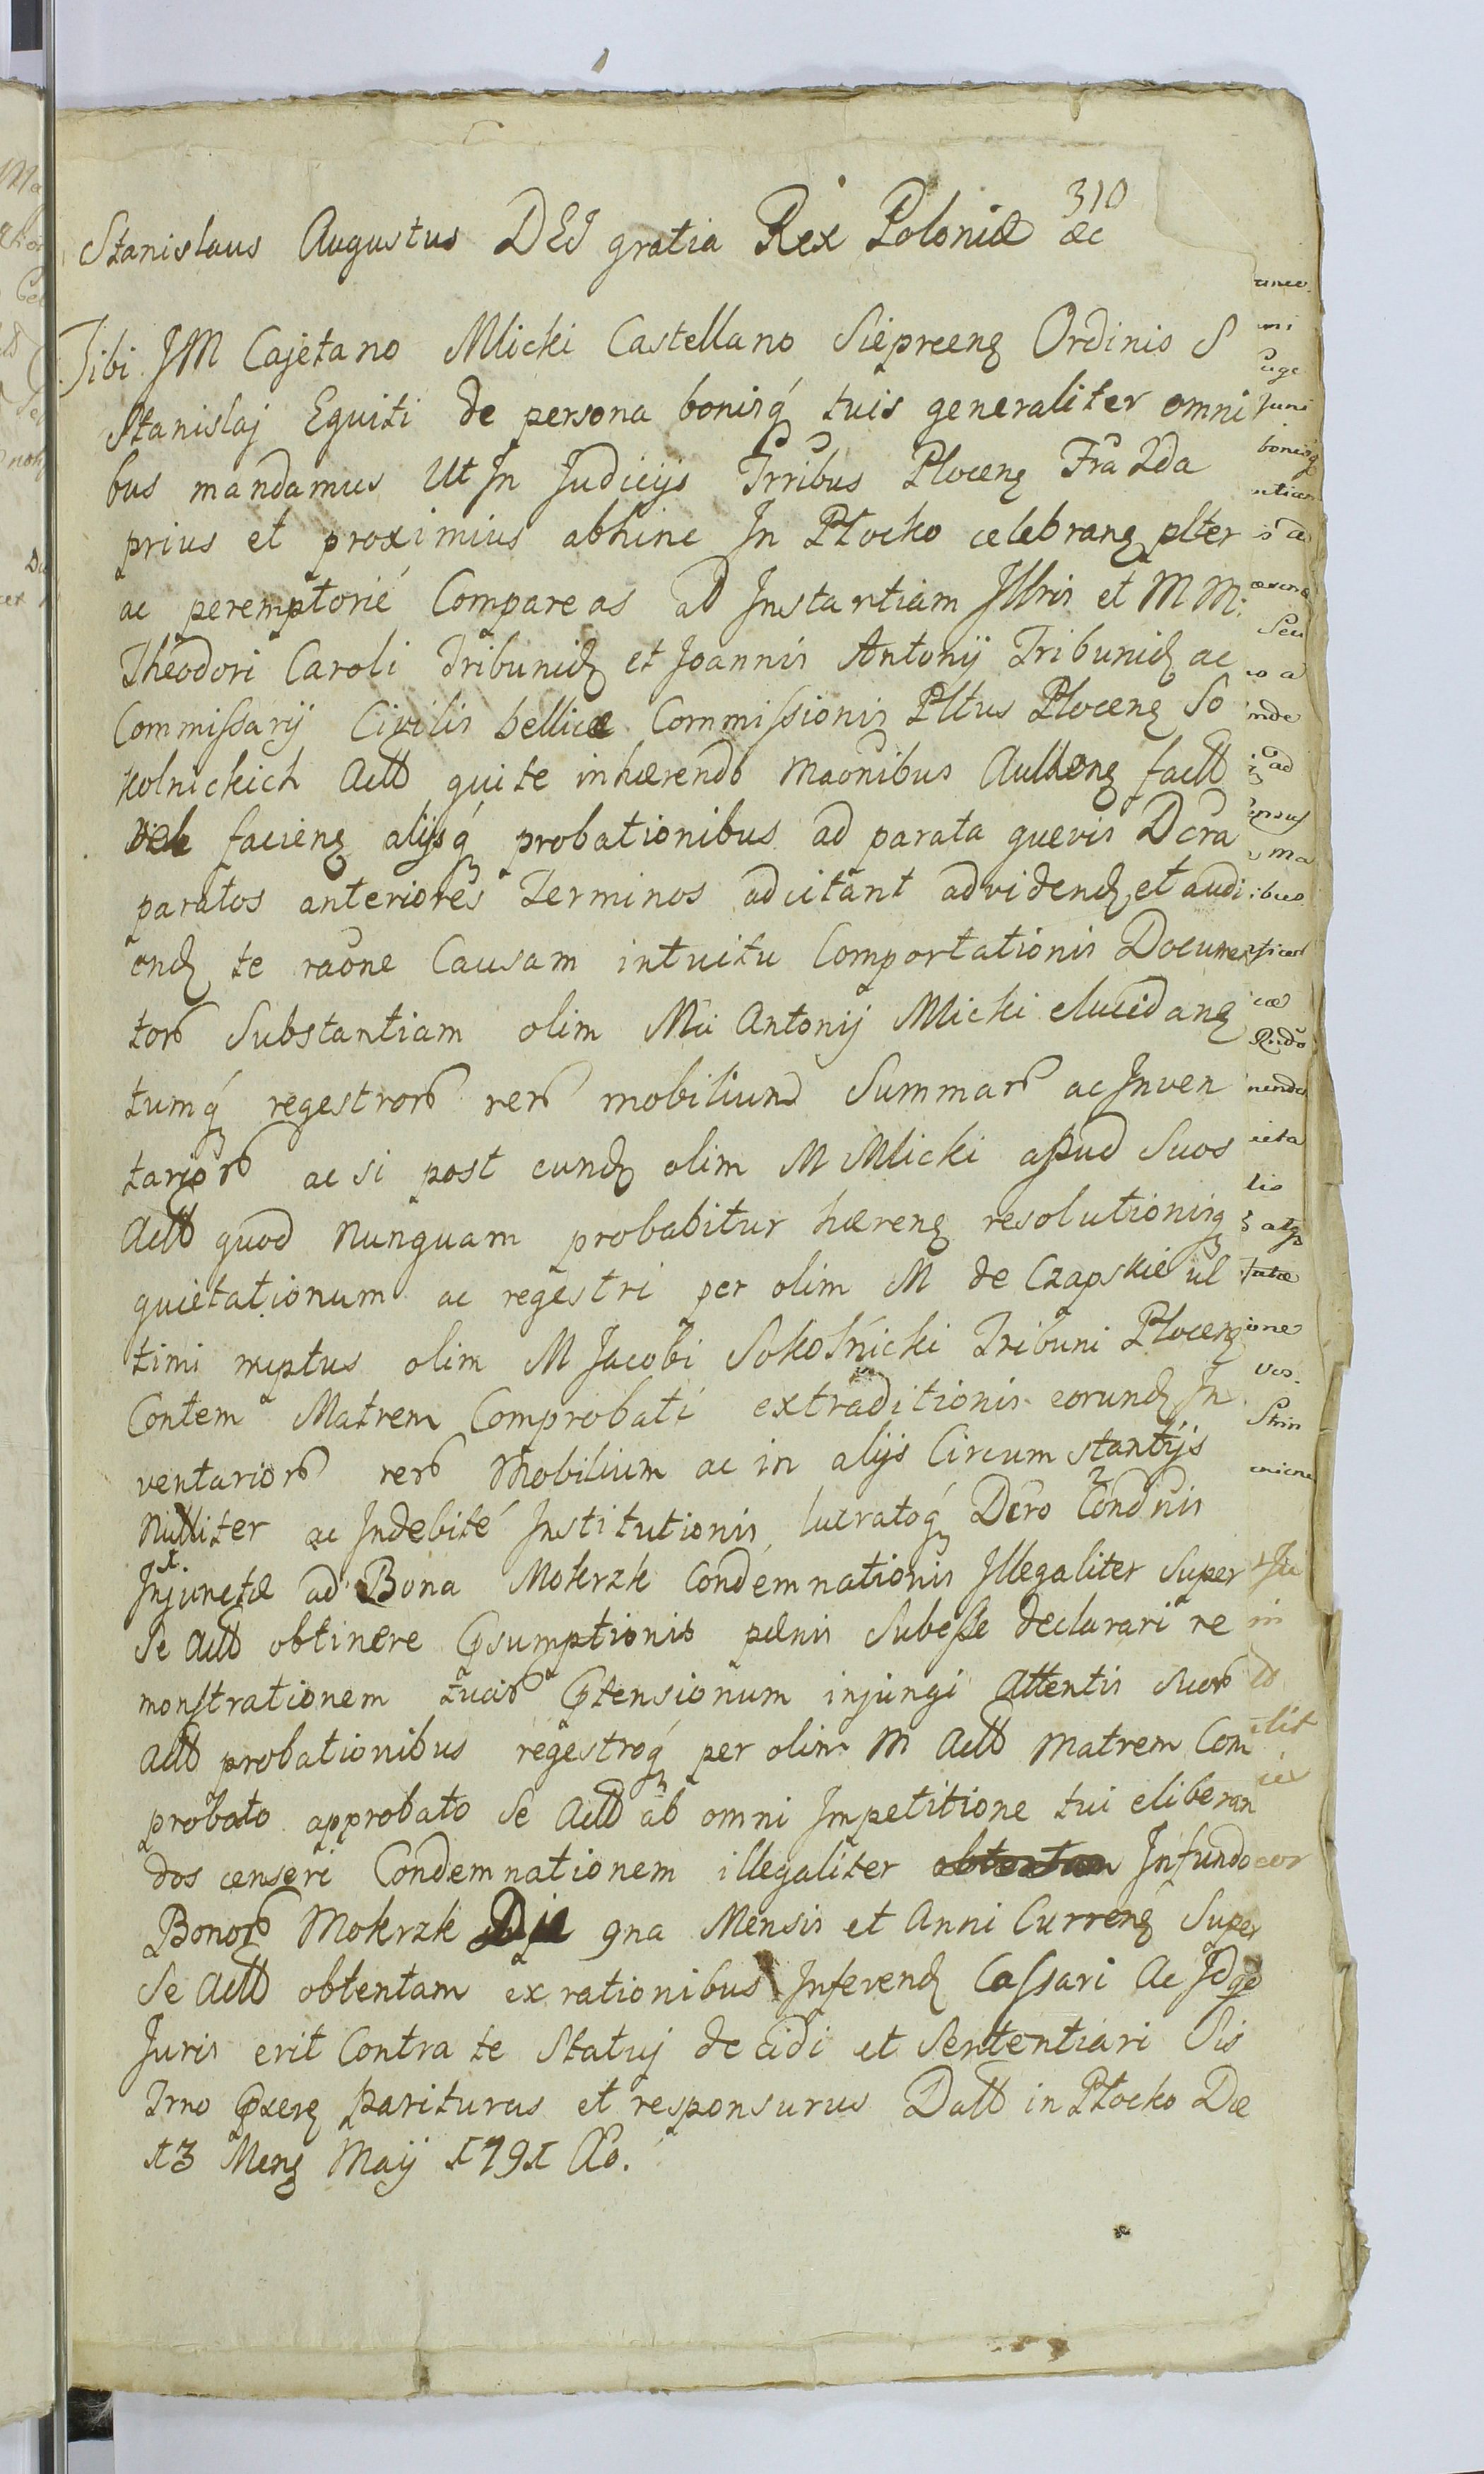 310
Stanislaus Augustus DEI gratia Rex Poloniæ &c
Tibi JM Cajetano Mlicki Castellano Siepreeng Ordinis S
Stanislaj Equiti de persona bonisq́ tuis generaliter omni
bus mandamus Ut In Judicijs Trribus Ploceng Fra 2da
prius et proximius abhinc In Płocko celebrang plter
ac peremptorié Compareas ad Instantiam Jllris et MM:
Theodori Caroli Tribunid et Joannis Antonij Tribunid ac
Commissarij Civilis bellicæ Commissionis Pltus Ploceng So
kolnickich Actt qui te inhærendo maonibus Autheng factt
vel facieng alijsq́ probationibus ad parata quevis Dcra
paratos anteriores Terminos adcitant ad videnđ et audi
enđ te raone Causam intuitu Comportationis Documen
tor Substantiam olim Mci Antonij Mlicki elucidang
tumq́ regestror rer mobilium Summar ac Inven
tarior ac si post eunđ olim M Mlicki apud Suos
Actt quod nunquam probabitur hæreng resolutionisq
quietationum ac regestri per olim M de Czapskie ul
timi nuptus olim M Jacobi Sokolnicki Tribuni Ploceng
Contem Matrem Comprobati extraditionis eorunđ In
ventarior rer Mobilium ac in alijs Circumstantijs
Nulliter ac Indebité Institutionis, lucratoq́ Dcro Condnis
Injunctæ ad Bona Mokrzk Condemnationis Illegaliter Super
Se Actt obtinere Præsumptionis pænis Subesse declarari re
monstrationem tuar Prætensionum injungi Attentis Suor
Actt probationibus regestroq́ per olim M Actt Matrem Com
probato approbato Se Actt ab omni Impetitione tui eliberan
dos censeri Condemnationem illegaliter Infundo
Bonor Mokrzk Die 9na Mensis et Anni Curreng Super
Se Actt obtentam ex rationibus Inferenđ Cassari Ac Jd qd
Juris erit Contra te Statuj decidi et Sententiari Sis
Trno Præxeng pariturus et responsurus Datt in Płocko Dæ
13 Meng Maij 1791 Ao.